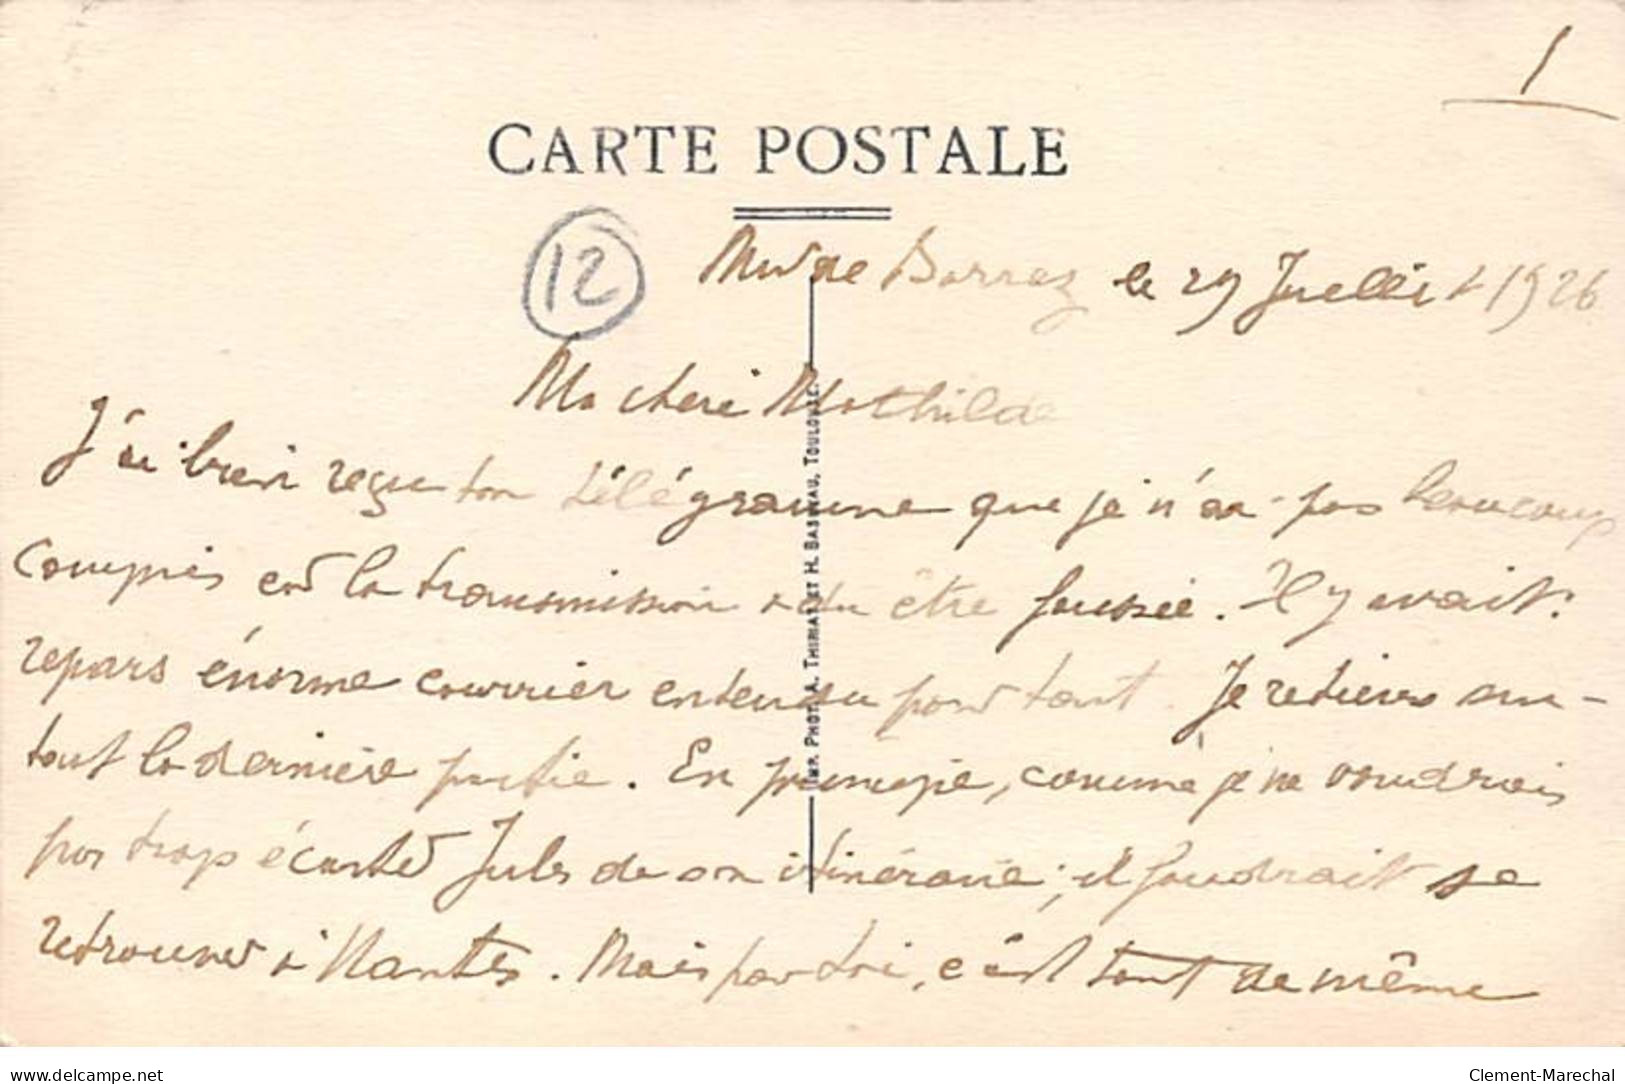 1
CARTE POSTALE
12
Mur de Barrez le 29 Juillet 1926
Ma chère Mathilde
J'ai bien reçu ton télégramme que je n'ai pas beaucoup
compris car la transmission a du être faussée. Il y avait :
repars énorme courrier entendu pour tout. Je retiens sur-
tout la dernière partie. En principe, comme je ne voudrais
pas trop écarter Jules de son itinéraire, il faudrait se
retrouver à Nantes. Mais pour toi, c'est tout de même
IMP. PHOT. A. THIRIAT ET H. BASUYAU, TOULOUSE.
delcampe.net
Clement-Marechal